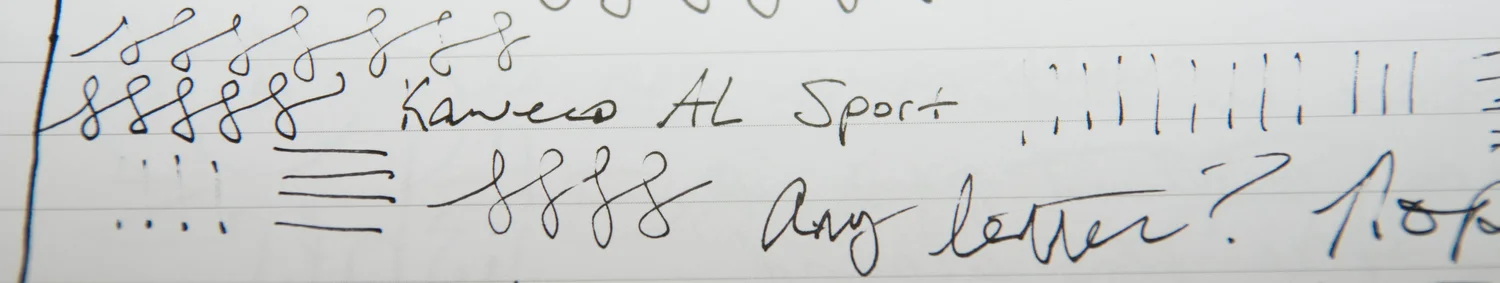 Kaweco AL Sport
Any letter?